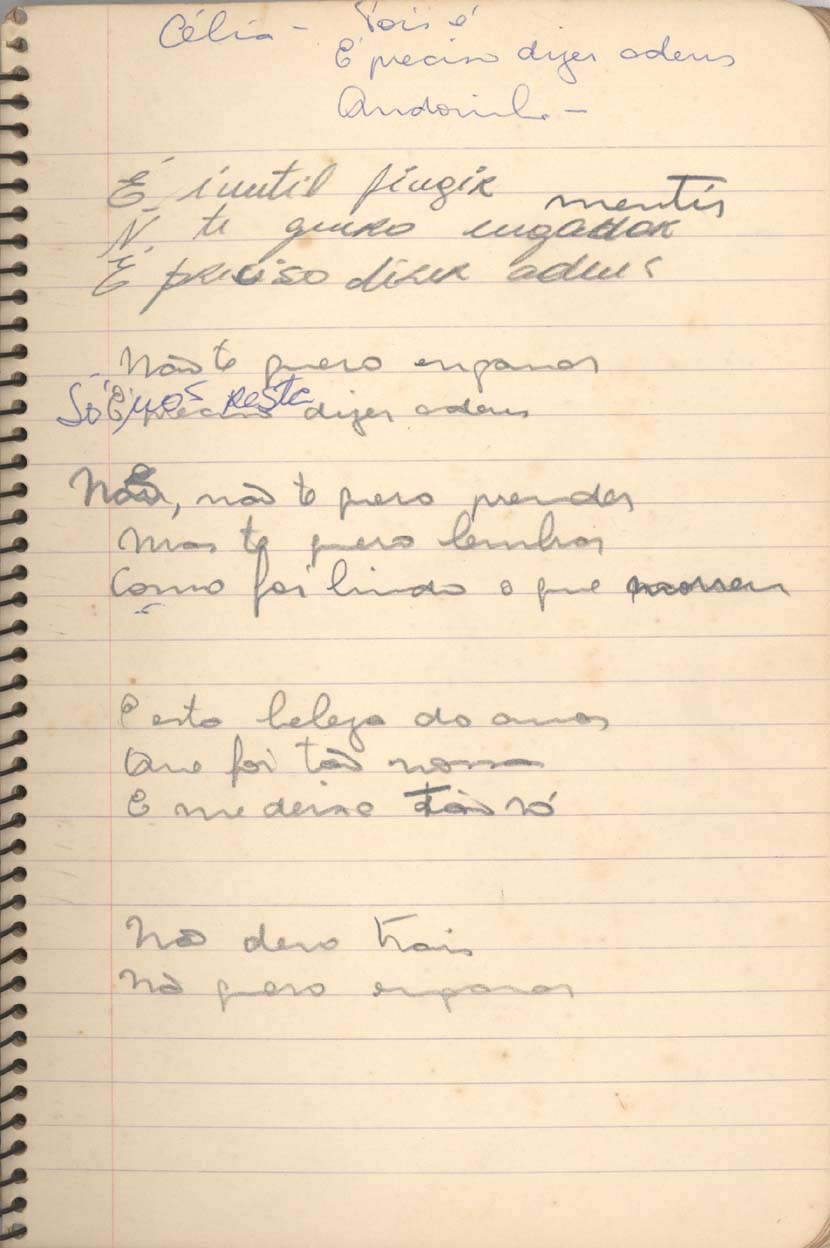 Célia - Pois é
É preciso dizer adeus
Andorinha -
É inutil fingir mentir
N. te quero enganar
É preciso dizer adeus
Não te quero enganar
Só nos resta
É preciso dizer adeus
Não, não te quero prender
Mas te quero lembrar
Como foi lindo o que morreu
E esta beleza do amor
Que foi tão nossa
E me deixa tão só
Não devo trair
Não quero enganar